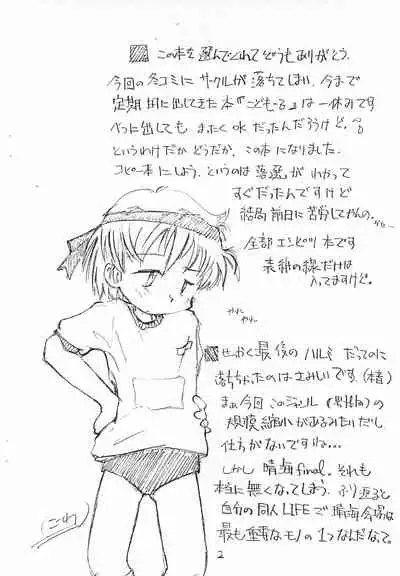 この本を選んでくれてどうもありがとう。
今回の冬コミにサークルが落ちてしまい、今まで
定期的に出してきた本『こども〜る』は一休みです
べつに出しても まったくOKだったんだろうけど。
というわけだかどうだか、この本になりました。
コピー本にしよう。というのは落選がわかって
すぐだったんですけど
結局前日に苦労してやんの。
全部エンピツ本です
表紙の線だけは
入ってますけど。
せっかく最後のハルミだってのに
落ちちゃったのはさみしいです。(本音)
まぁ今回このジャンル(男性向)の
規模縮小があるみたいだし
仕方がないですね…
しかし晴海final。それも
本当に無くなってしまう。ふり返ると
自分の同人LIFEで晴海会場は
最も重要なモノの1つなんだなって。
2